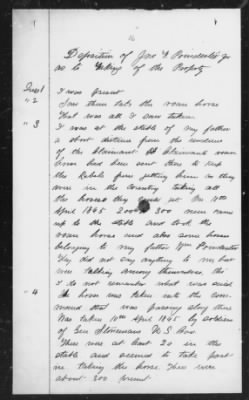 Deposition of Jno F Poindexter Jr
as to taking of the Property
Quest 1 I was present
" 2 I saw them take the roan horse
That was all I saw taken
" 3 I was at the stable of my father
a short distance from the residence
of the Claimant. Claimants roan
horse had been sent there to keep
the Rebels from getting him as they
were in the Country taking all
the horses they could get. On 10th
April 1865 200 to 300 men came
up to the stable and took the
roan horse and also some horses
belonging to my father Wm Poindexter
They did not say anything to me but
were talking among themselves, this
I do not remember what was said
" 4 The horse was taken at the com-
mand that was passing along there
Was taken 10th April 1865 by soldiers
of Gen Stonemans U S Army
There were at least 20 in the
stable and seemed to take part
in taking the horse. There were
about 300 present